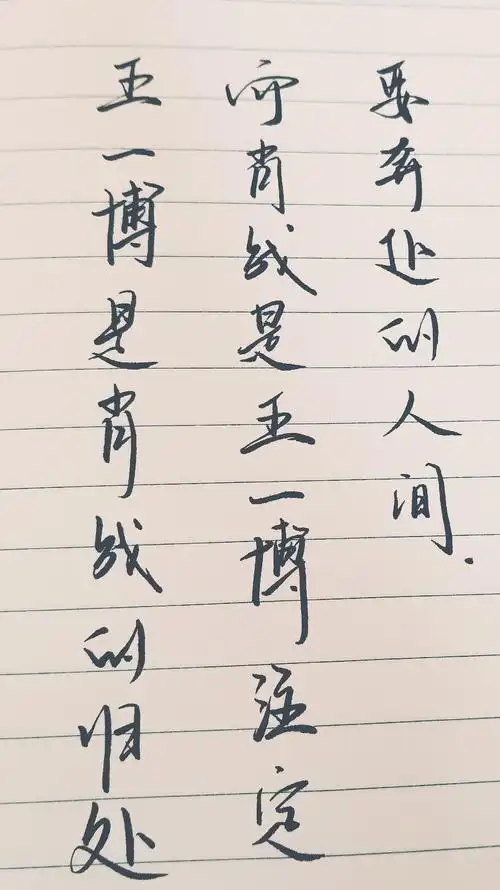 王一博是肖战的归处
而肖战是王一博注定
要奔赴的人间.